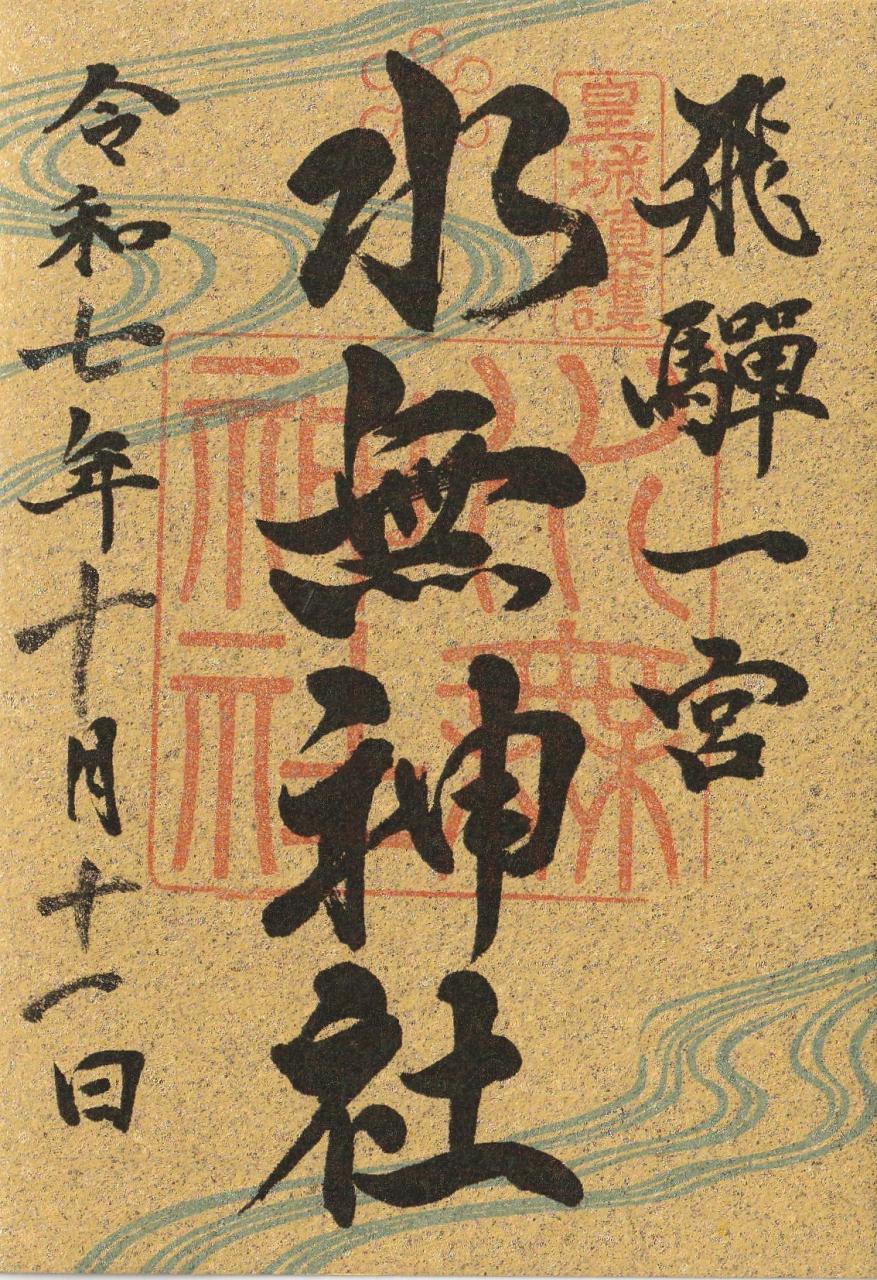 飛驒一宮
皇城鎮護
水無神社
水無神社
令和七年十月十一日